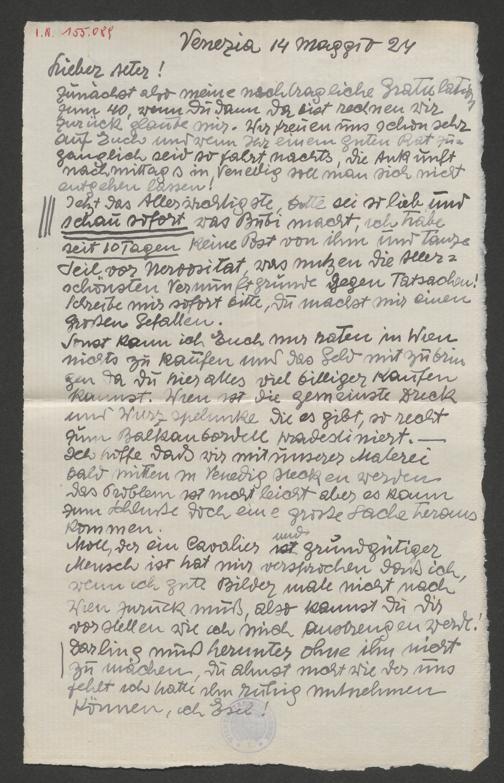 I.N. 155.089
Venezia 14 maggio 24
Lieber Peter!
Zunächst also meine nachträgliche Gratulation
zum 40, wenn Du dann da bist rechnen wir
zurück glaube mir. Wir freuen uns schon sehr
auf Euch und wenn Ihr einem guten Rat zu=
gänglich seid so fahrt nachts, die Ankunft
nachmittags in Venedig soll man sich nicht
entgehen lassen!
Jetzt das Allerwichtigste, bitte sei so lieb und
schau sofort was Bubi macht, ich habe
seit 10 Tagen keine Post von ihm und tanze
Seil vor Nervosität, was nutzen die aller=
schönsten Vernunftgründe gegen Tatsachen!
Schreibe mir sofort bitte, Du machst mir einen
großen Gefallen.
Sonst kann ich Euch nur raten in Wien
nichts zu kaufen und das Geld mitzubrin
gen da Du hier alles viel billiger kaufen
kannst. Wien ist die gemeinste Dreck
und Wurzspelunke die es gibt, so recht
zum Balkanbordell prädestiniert. —
Ich hoffe daß wir mit unserer Malerei
bald mitten in Venedig stecken werden
das Problem ist nicht leicht aber es kann
zum Schluße doch eine große Sache heraus
kommen.
Moll, der ein Cavalier und grundgütiger
Mensch ist hat mir versprochen daß ich,
wenn ich gute Bilder male nicht nach
Wien zurück muß, also kannst Du Dir
vorstellen wie ich mich anstrengen werde!
Darling muß herunter ohne ihm nicht
zu machen, Du ahnst nicht wie der uns
fehlt ich hätte ihn ruhig mitnehmen
können, ich Esel!